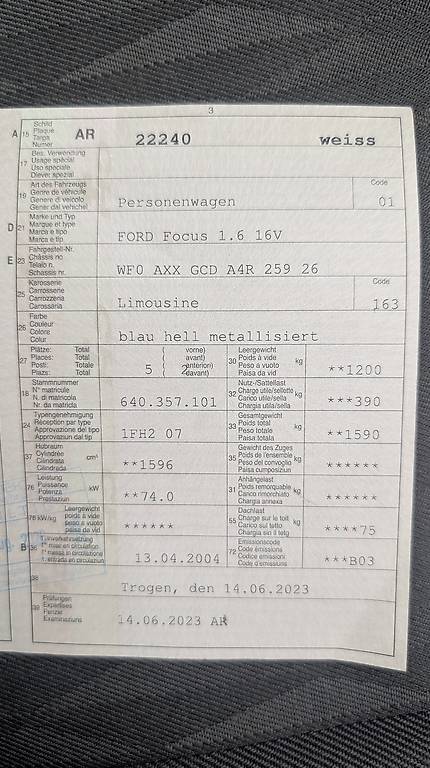 3
A 15 Schild Plaque Targa Numer AR 22240 weiss
17 Bes. Verwendung Usage spécial Uso speciale Diever spezial
19 Art des Fahrzeugs Genre de véhicule Genere di veicolo Gener dal vehichel Personenwagen Code 01
D 21 Marke und Typ Marque et type Marca e tipo Marca e tip FORD Focus 1.6 16V
E 23 Fahrgestell-Nr. Châssis no Telaio n. Schassis nr. WF0 AXX GCD A4R 259 26
25 Karosserie Carrosserie Carrozzeria Carossaria Limousine Code 163
26 Farbe Couleur Colore Colur blau hell metallisiert
27 Plätze: Places: Posti: Plazs: Total Total Totale Total 5 ( vorne) ( avant) ( anteriori) ( davant) 2 30 Leergewicht Poids à vide Peso a vuoto Paisa da vid kg **1200
18 Stammnummer N° matricule N. di matricola Nr. da matricla 640.357.101 32 Nutz-/Sattellast Charge utile/sellette Carico utile/sella Chargia utila/sella kg ***390
24 Typengenehmigung Réception par type Approvazione del tipo Approvaziun dal tip 1FH2 07 33 Gesamtgewicht Poids total Peso totale Paisa totala kg **1590
37 Hubraum Cylindrée Cilindrata Cilindrada cm³ **1596 35 Gewicht des Zuges Poids de l'ensemble Peso del convoglio Paisa cumposiziun kg ******
76 Leistung Puissance Potenza Prestaziun kW **74.0 31 Anhängelast Poids remorquable Carico rimorchiato Chargia annexa kg ******
78 kW/kg Leergewicht poids à vide peso a vuoto paisa da vid ****** 55 Dachlast Charge sur le toit Carico sul tetto Chargia sin il tetg kg ****75
B 36 1. Inverkehrsetzung 1re mise en circulation 1a messa in circolazione 1. entrada en circulaziun 13.04.2004 72 Emissionscode Code émissions Codice emissioni Code d'emissiuns ***B03
38 Trogen, den 14.06.2023
39 Prüfungen Expertises Perizie Examinaziuns 14.06.2023 AR